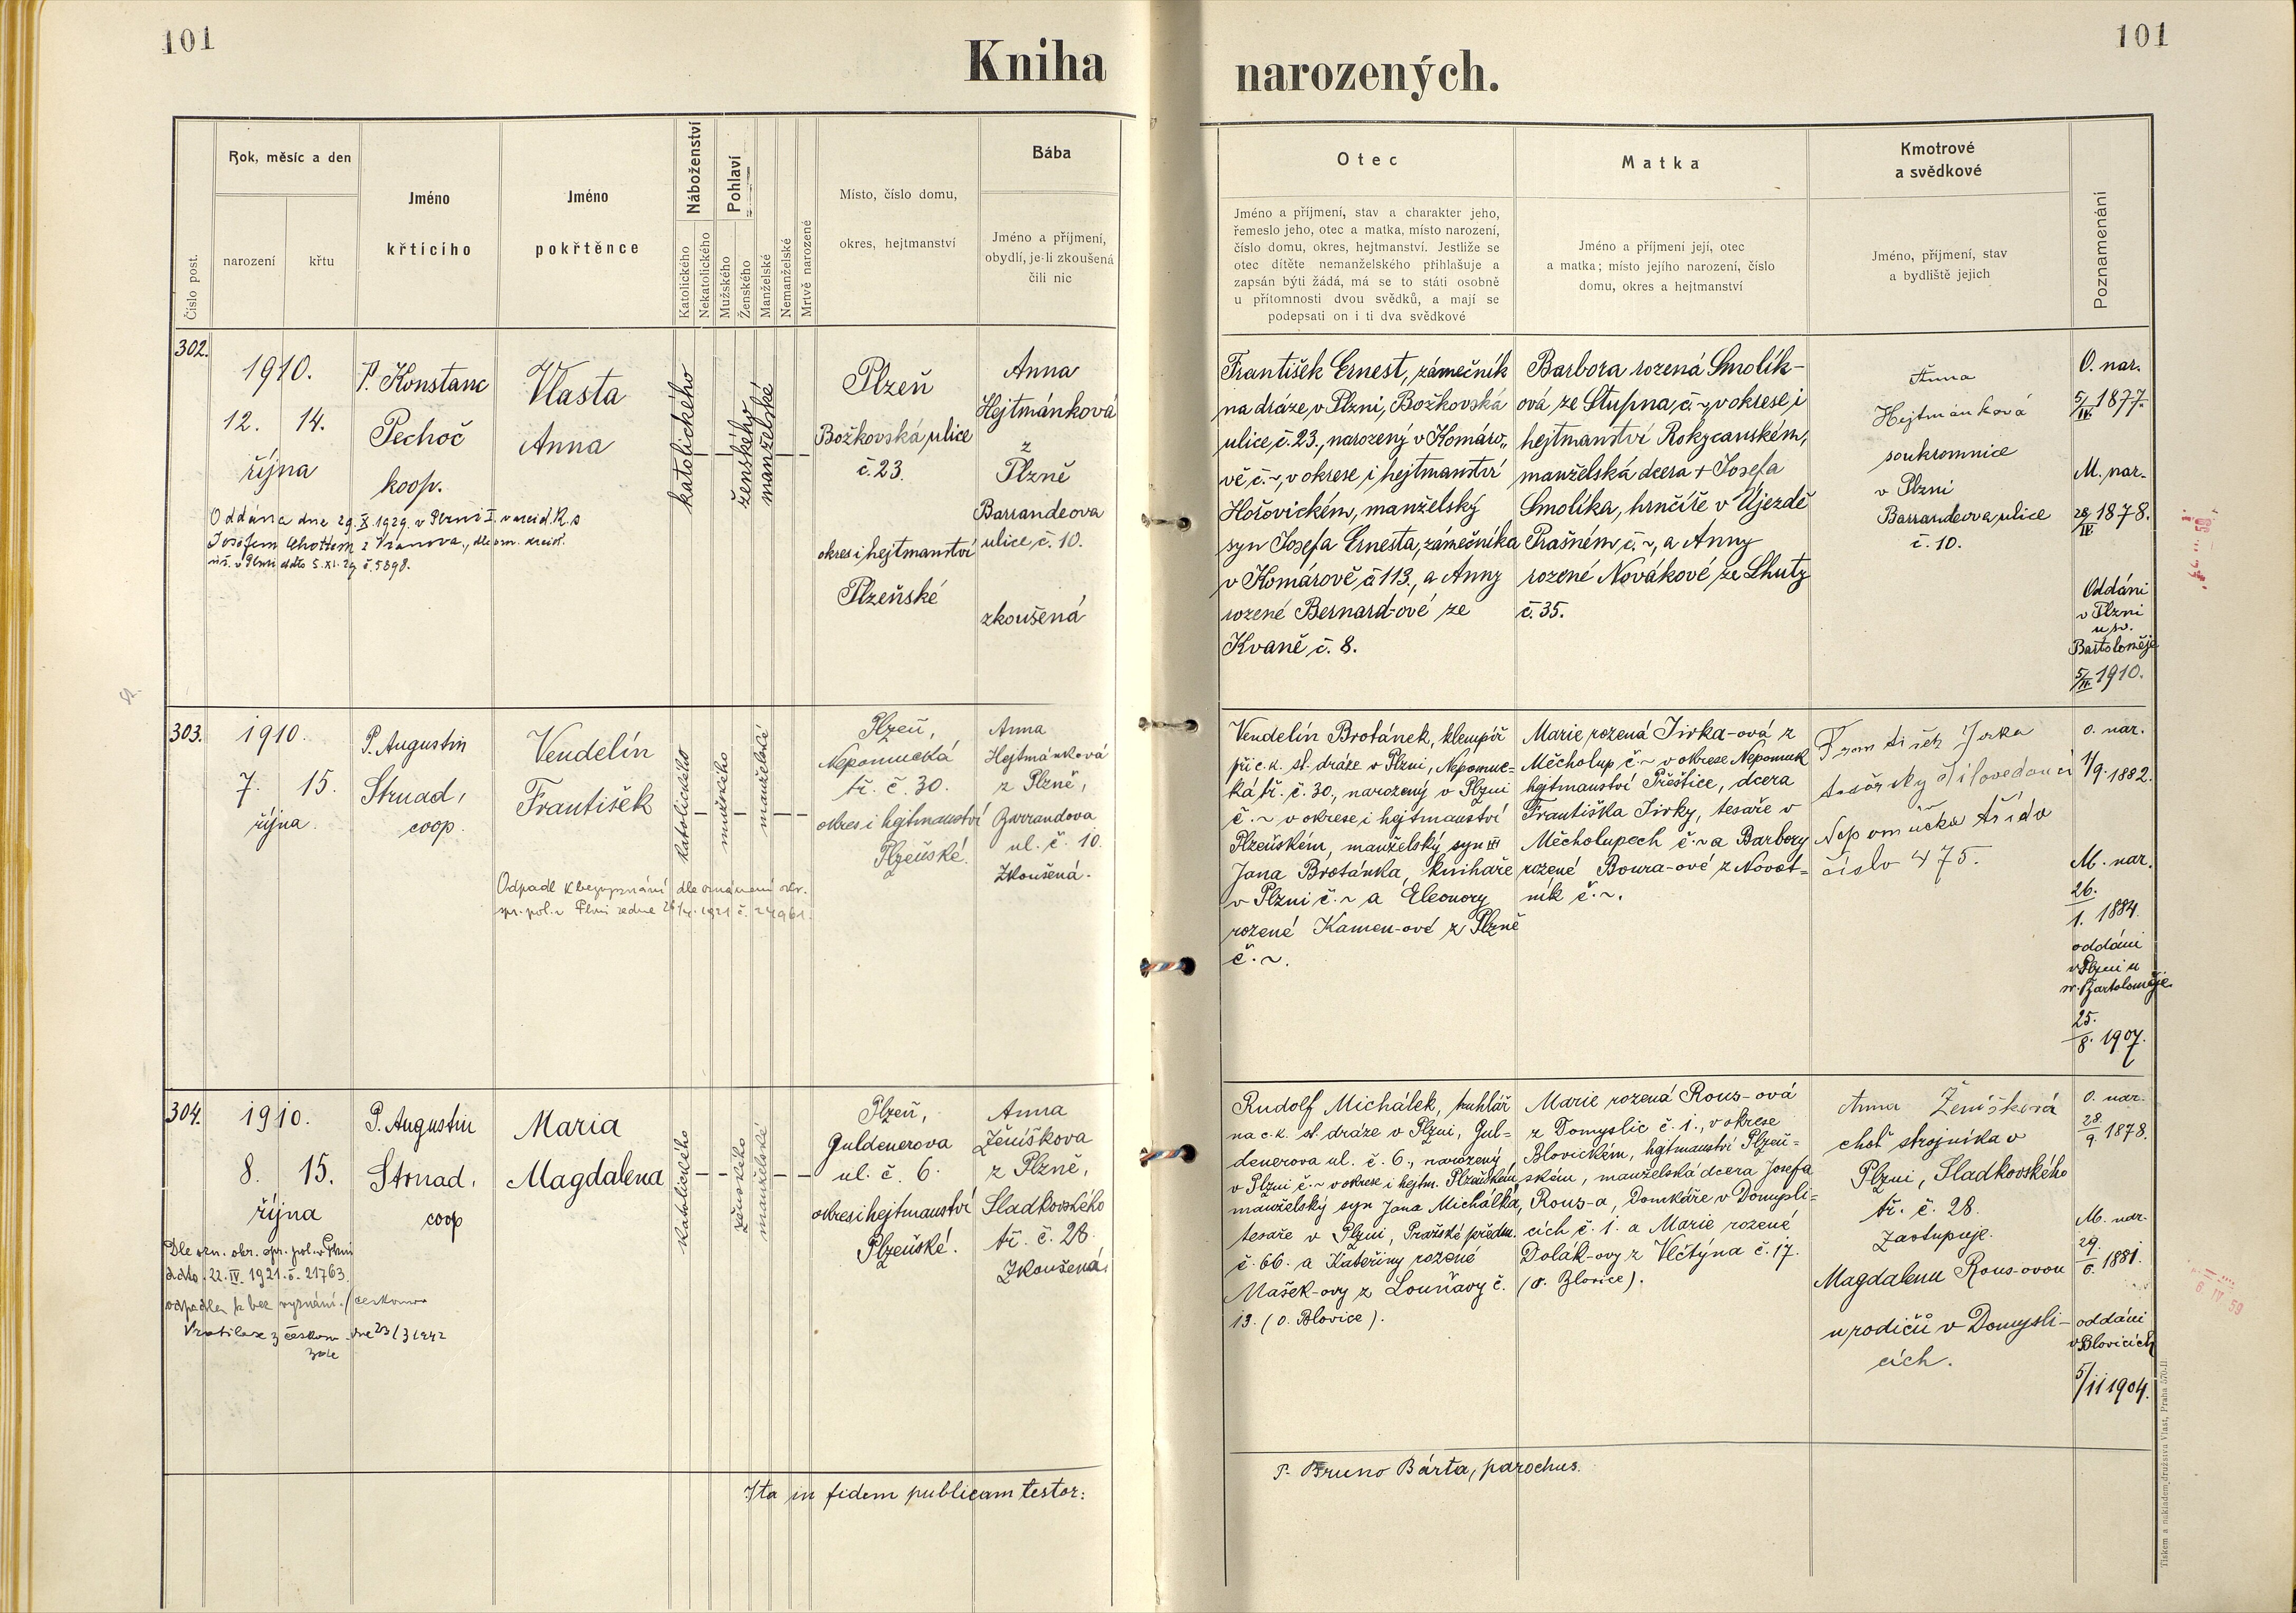 101
Kniha
narozených.
101
Číslo post.
Rok, měsíc a den
narození
křtu
Jméno
křtícího
Jméno
pokřtěnce
Náboženství
Katolického
Nekatolického
Pohlaví
Mužského
Ženského
Manželské
Nemanželské
Mrtvě narozené
Místo, číslo domu,
okres, hejtmanství
Bába
Jméno a příjmení,
obydlí, je-li zkoušená
čili nic
Otec
Jméno a příjmení, stav a charakter jeho,
řemeslo jeho, otec a matka, místo narození,
číslo domu, okres, hejtmanství. Jestliže se
otec dítěte nemanželského přihlašuje a
zapsán býti žádá, má se to státi osobně
u přítomnosti dvou svědků, a mají se
podepsati on i ti dva svědkové
Matka
Jméno a příjmení její, otec
a matka; místo jejího narození, číslo
domu, okres a hejtmanství
Kmotrové
a svědkové
Jméno, příjmení, stav
a bydliště jejich
Poznamenání
302.
1910.
12. 14.
října
P. Konstanc
Pechoč
koop.
Vlasta
Anna
katolického
ženského
manželské
Plzeň
Božkovská ulice
č. 23.
okres i hejtmanství
Plzeňské
Anna
Hejtmánková
z
Plzně
Barrandeova
ulice č. 10.
zkoušená
Oddána dne 29. X. 1929. v Plzni I.
Josefem
František Ernest, zámečník
na dráze v Plzni, Božkovská
ulice č. 23., narozený v Komáro„
vě č. ~, v okrese i hejtmanství
Hořovickém, manželský
syn Josefa Ernesta, zámečníka
v Komárově č 113., a Anny
rozené Bernard-ové ze
Kvaně č. 8.
Barbora rozená Smolík-
ová, ze Stupna č. ~, v okrese i
hejtmanství Rokycanském,
manželská dcera + Josefa
Smolíka, hrnčíře v Újezdě
Prašném č. ~, a Anny
rozené Novákové ze Lhuty
č. 35.
Anna
Hejtmánková
soukromnice
v Plzni
Barrandeova ulice
č. 10.
O. nar.
5/IV. 1877.
M. nar.
1878.
Oddáni
v Plzni
u sv.
Bartoloměje
5/IV. 1910.
303.
1910.
7. 15.
října
P. Augustin
Strnad,
coop.
Vendelín
František
katolického
mužského
manželské
Plzeň,
Nepomucká
tř. č. 30.
okres i hejtmanství
Plzeňské.
Anna
Hejtmánková
z Plzně,
Barrandova
ul. č. 10.
Zkoušená.
Odpadl k bezvyznání dle oznámení obv.
Vendelín Brotánek, klempíř
při c. k. st. dráze v Plzni, Nepomuc=
ká tř. č. 30., narozený v Plzni
č. ~ v okrese i hejtmanství
Plzeňském, manželský syn
Jana Brotánka, knihaře
v Plzni č. ~ a Eleonory
rozené Kamen-ové z Plzně
č. ~.
Marie rozená Jirka-ová z
Měcholup č. ~ v okrese Nepomuk
hejtmanství Přeštice, dcera
Františka Jirky, tesaře v
Měcholupech č. ~ a Barbory
rozené Boura-ové z Novot=
ník č. ~.
číslo 475.
o. nar.
1/9. 1882.
M. nar.
26.
1. 1884.
oddáni
v Plzni u
sv. Bartoloměje.
25.
8. 1907.
304.
1910.
8. 15.
října
P. Augustin
Strnad,
coop
Maria
Magdalena
katolického
ženského
manželské
Plzeň,
Guldenerova
ul. č. 6.
okres i hejtmanství
Plzeňské.
Anna
Ženíškova
z Plzně,
Sladkovského
tř. č. 28.
Zkoušená
Dle ozn. obv. spr. pol. v Plzni
ddto. 22. IV. 1921. č. 21763.
odpadla k bez vyznání.
Rudolf Michálek, truhlář
na c. k. st. dráze v Plzni, Gul=
denerova ul. č. 6., narozený
v Plzni č. ~ v okrese i hejtm. Plzeňském
manželský syn Jana Michálka,
tesaře v Plzni, Pražské předm.
č. 66. a Kateřiny rozené
Mašek-ovy z Louňavy č.
13. (o. Blovice).
Marie rozená Rous-ová
z Domyslic č. 1., v okrese
Blovickém, hejtmanství Plzeň=
ském, manželská dcera Josefa
Rous-a, Domkáře v Domysli=
cích č. 1. a Marie rozené
Dolák-ovy z Vlčtýna č. 17.
(o. Blovice).
Anna Ženíšková
choť strojníka v
Plzni, Sladkovského
tř. č. 28.
zastupuje.
Magdalenu Rous-ovou
u rodičů v Domysli-
cích.
O. nar.
28.
9. 1878.
M. nar.
29.
6. 1881.
oddáni
v Blovicích
5/11 1904.
Ita in fidem publicam testor:
P. Bruno Bárta, parochus.
Tiskem a nákladem družstva Vlast, Praha 570-II